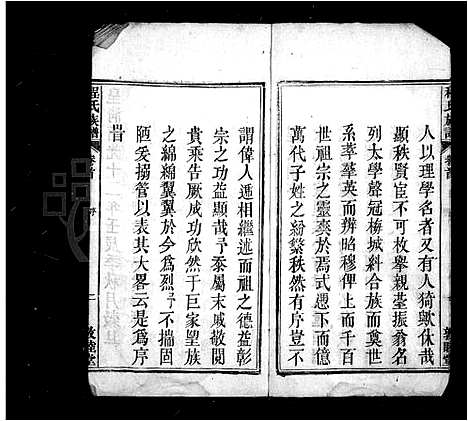 人以理學名者又有人猗歟休哉
顯秩賢臣不可枚舉親臺振翁名
列太學聲冠梅城糾合族而奠世
系萃華英而辨昭穆俾上而千百
世祖宗之靈爽於焉式憑下而億
萬代子姓之紛繁秩然有序豈不
謂偉人遞相繼述而祖之德益彰
宗之功益顯哉予忝屬末戚敬閱
貴乘告厥成功欣然于巨家望族
之綿綿翼翼於今為烈予不揣固
陋爰搦管以表其大畧云是為序
旹
程氏族譜
卷首
序
一
敦睦堂